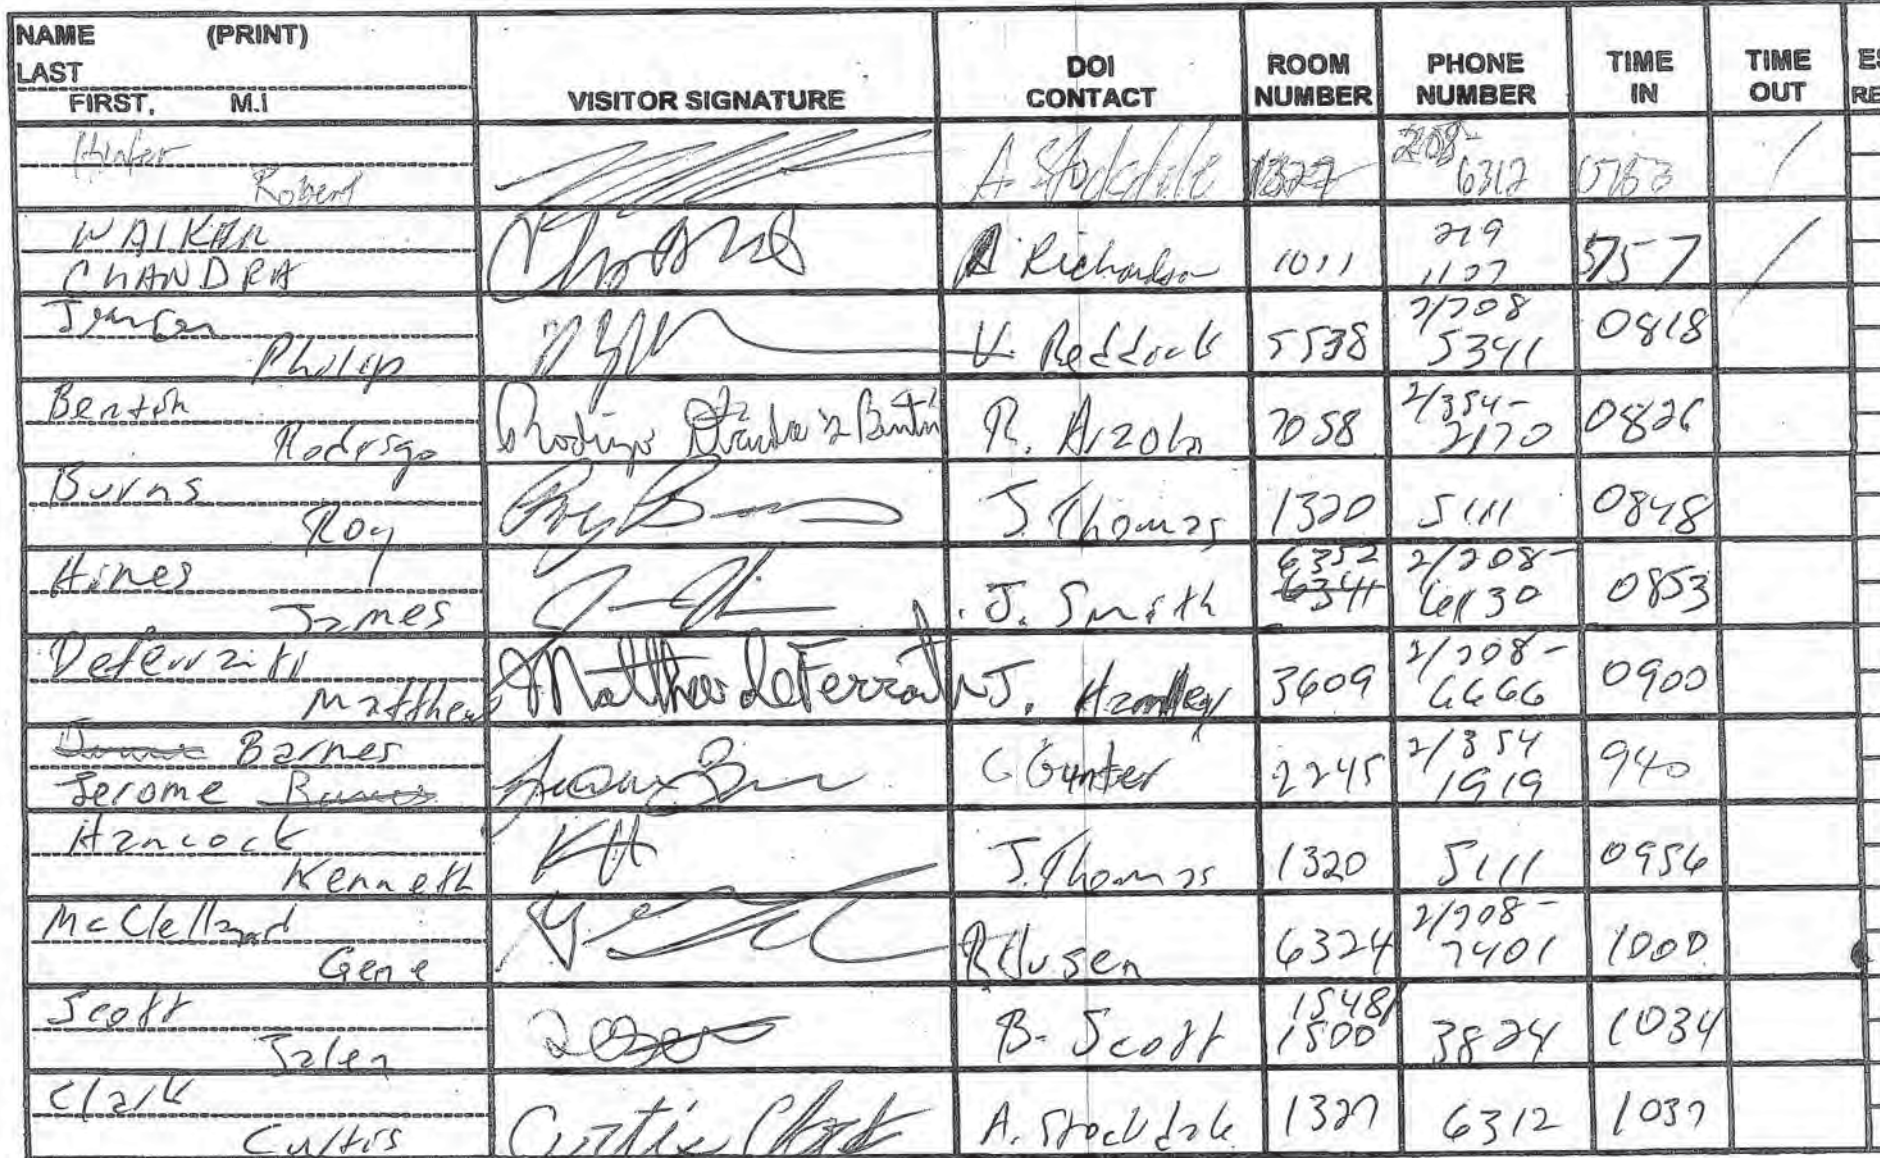 NAME (PRINT)
LAST
FIRST, M.I
VISITOR SIGNATURE
DOI CONTACT
ROOM NUMBER
PHONE NUMBER
TIME IN
TIME OUT
Robert A Stockdale 1327 208- 6312
WALKER
CHANDRA Richardson 1011 219 1127
Philip V. Reddock 5538 2/208 5341 0818
Benton
Rodrigo R. Arzola 7058 2/354- 2170 0826
Burns
Roy Roy B J. Thomas 1320 5111 0848
Hines
James J. Smith 6352 6341 2/208- 6130 0853
Deferraiti
Matthew Matthew deFerranti J. Hamley 3609 2/208- 6666 0900
Barnes
Jerome C Gunter 2245 2/354 1919 940
Hancock
Kenneth KH J. Thomas 1320 5111 0956
McClelland
Gene 6324 2/208- 7401 1000
Scott
Jalen B. Scott 1548/ 1500 3824 1034
Clark
Curtis Curtis Clark A. Stockdale 1327 6312 1037